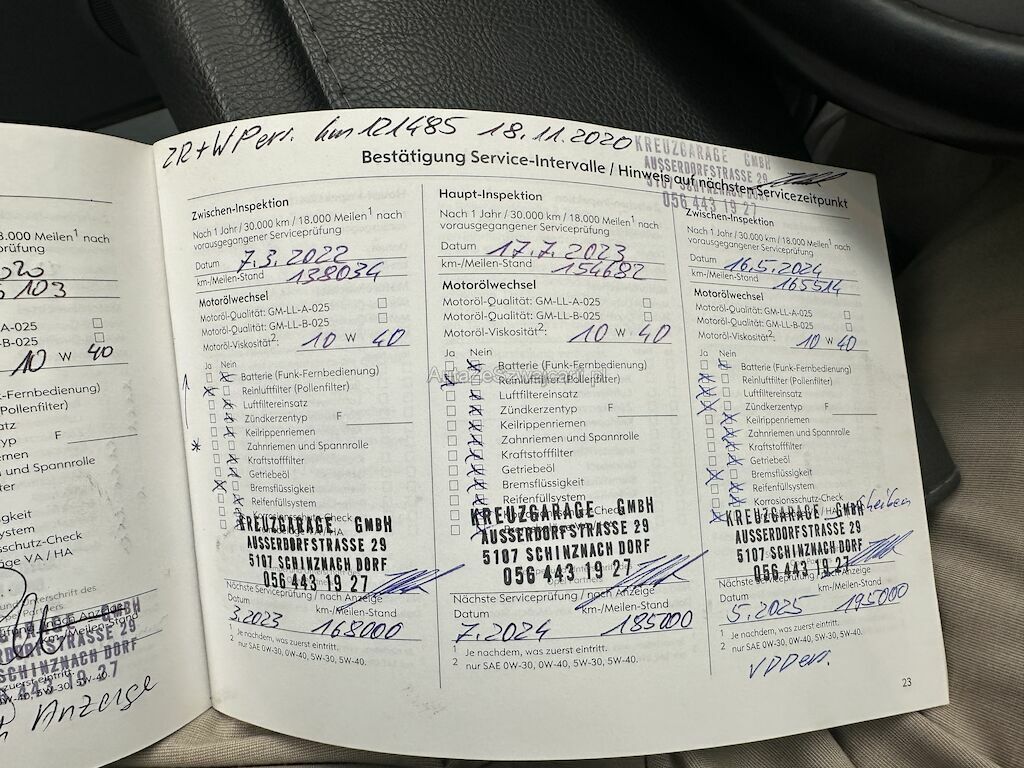 ZR+WPers. km 121485 18.11.2020
KREUZGARAGE GMBH
AUSSERDORFSTRASSE 29
5107 SCHINZNACH DORF
056 443 19 27
Bestätigung Service-Intervalle / Hinweis auf nächsten Servicezeitpunkt
Zwischen-Inspektion
Nach 1 Jahr / 30.000 km / 18.000 Meilen1 nach
vorausgegangener Serviceprüfung
Datum 7.3.2022
km-/Meilen-Stand 138034
Motorölwechsel
Motoröl-Qualität: GM-LL-A-025
Motoröl-Qualität: GM-LL-B-025
Motoröl-Viskosität2: 10 W 40
Ja Nein
Batterie (Funk-Fernbedienung)
Reinluftfilter (Pollenfilter)
Luftfiltereinsatz
Zündkerzentyp F
Keilrippenriemen
Zahnriemen und Spannrolle
Kraftstofffilter
Getriebeöl
Bremsflüssigkeit
Reifenfüllsystem
KREUZGARAGE GMBH
AUSSERDORFSTRASSE 29
5107 SCHINZNACH DORF
056 443 19 27
Nächste Serviceprüfung / nach Anzeige
Datum km-/Meilen-Stand
3.2023 168000
1 Je nachdem, was zuerst eintritt.
2 nur SAE 0W-30, 0W-40, 5W-30, 5W-40.
Haupt-Inspektion
Nach 1 Jahr / 30.000 km / 18.000 Meilen1 nach
vorausgegangener Serviceprüfung
Datum 17.7.2023
km-/Meilen-Stand 154682
Motorölwechsel
Motoröl-Qualität: GM-LL-A-025
Motoröl-Qualität: GM-LL-B-025
Motoröl-Viskosität2: 10 W 40
Ja Nein
Batterie (Funk-Fernbedienung)
Reinluftfilter (Pollenfilter)
Luftfiltereinsatz
Zündkerzentyp F
Keilrippenriemen
Zahnriemen und Spannrolle
Kraftstofffilter
Getriebeöl
Bremsflüssigkeit
Reifenfüllsystem
KREUZGARAGE GMBH
AUSSERDORFSTRASSE 29
5107 SCHINZNACH DORF
056 443 19 27
Nächste Serviceprüfung / nach Anzeige
Datum km-/Meilen-Stand
7.2024 185000
1 Je nachdem, was zuerst eintritt.
2 nur SAE 0W-30, 0W-40, 5W-30, 5W-40.
Zwischen-Inspektion
Nach 1 Jahr / 30.000 km / 18.000 Meilen1 nach
vorausgegangener Serviceprüfung
Datum 16.5.2024
km-/Meilen-Stand 165514
Motorölwechsel
Motoröl-Qualität: GM-LL-A-025
Motoröl-Qualität: GM-LL-B-025
Motoröl-Viskosität2: 10 W 40
Ja Nein
Batterie (Funk-Fernbedienung)
Reinluftfilter (Pollenfilter)
Luftfiltereinsatz
Zündkerzentyp F
Keilrippenriemen
Zahnriemen und Spannrolle
Kraftstofffilter
Getriebeöl
Bremsflüssigkeit
Reifenfüllsystem
Korrosionsschutz-Check
KREUZGARAGE GMBH
AUSSERDORFSTRASSE 29
5107 SCHINZNACH DORF
056 443 19 27
Nächste Serviceprüfung / nach Anzeige
Datum km-/Meilen-Stand
5.2025 195000
1 Je nachdem, was zuerst eintritt.
2 nur SAE 0W-30, 0W-40, 5W-30, 5W-40.
23